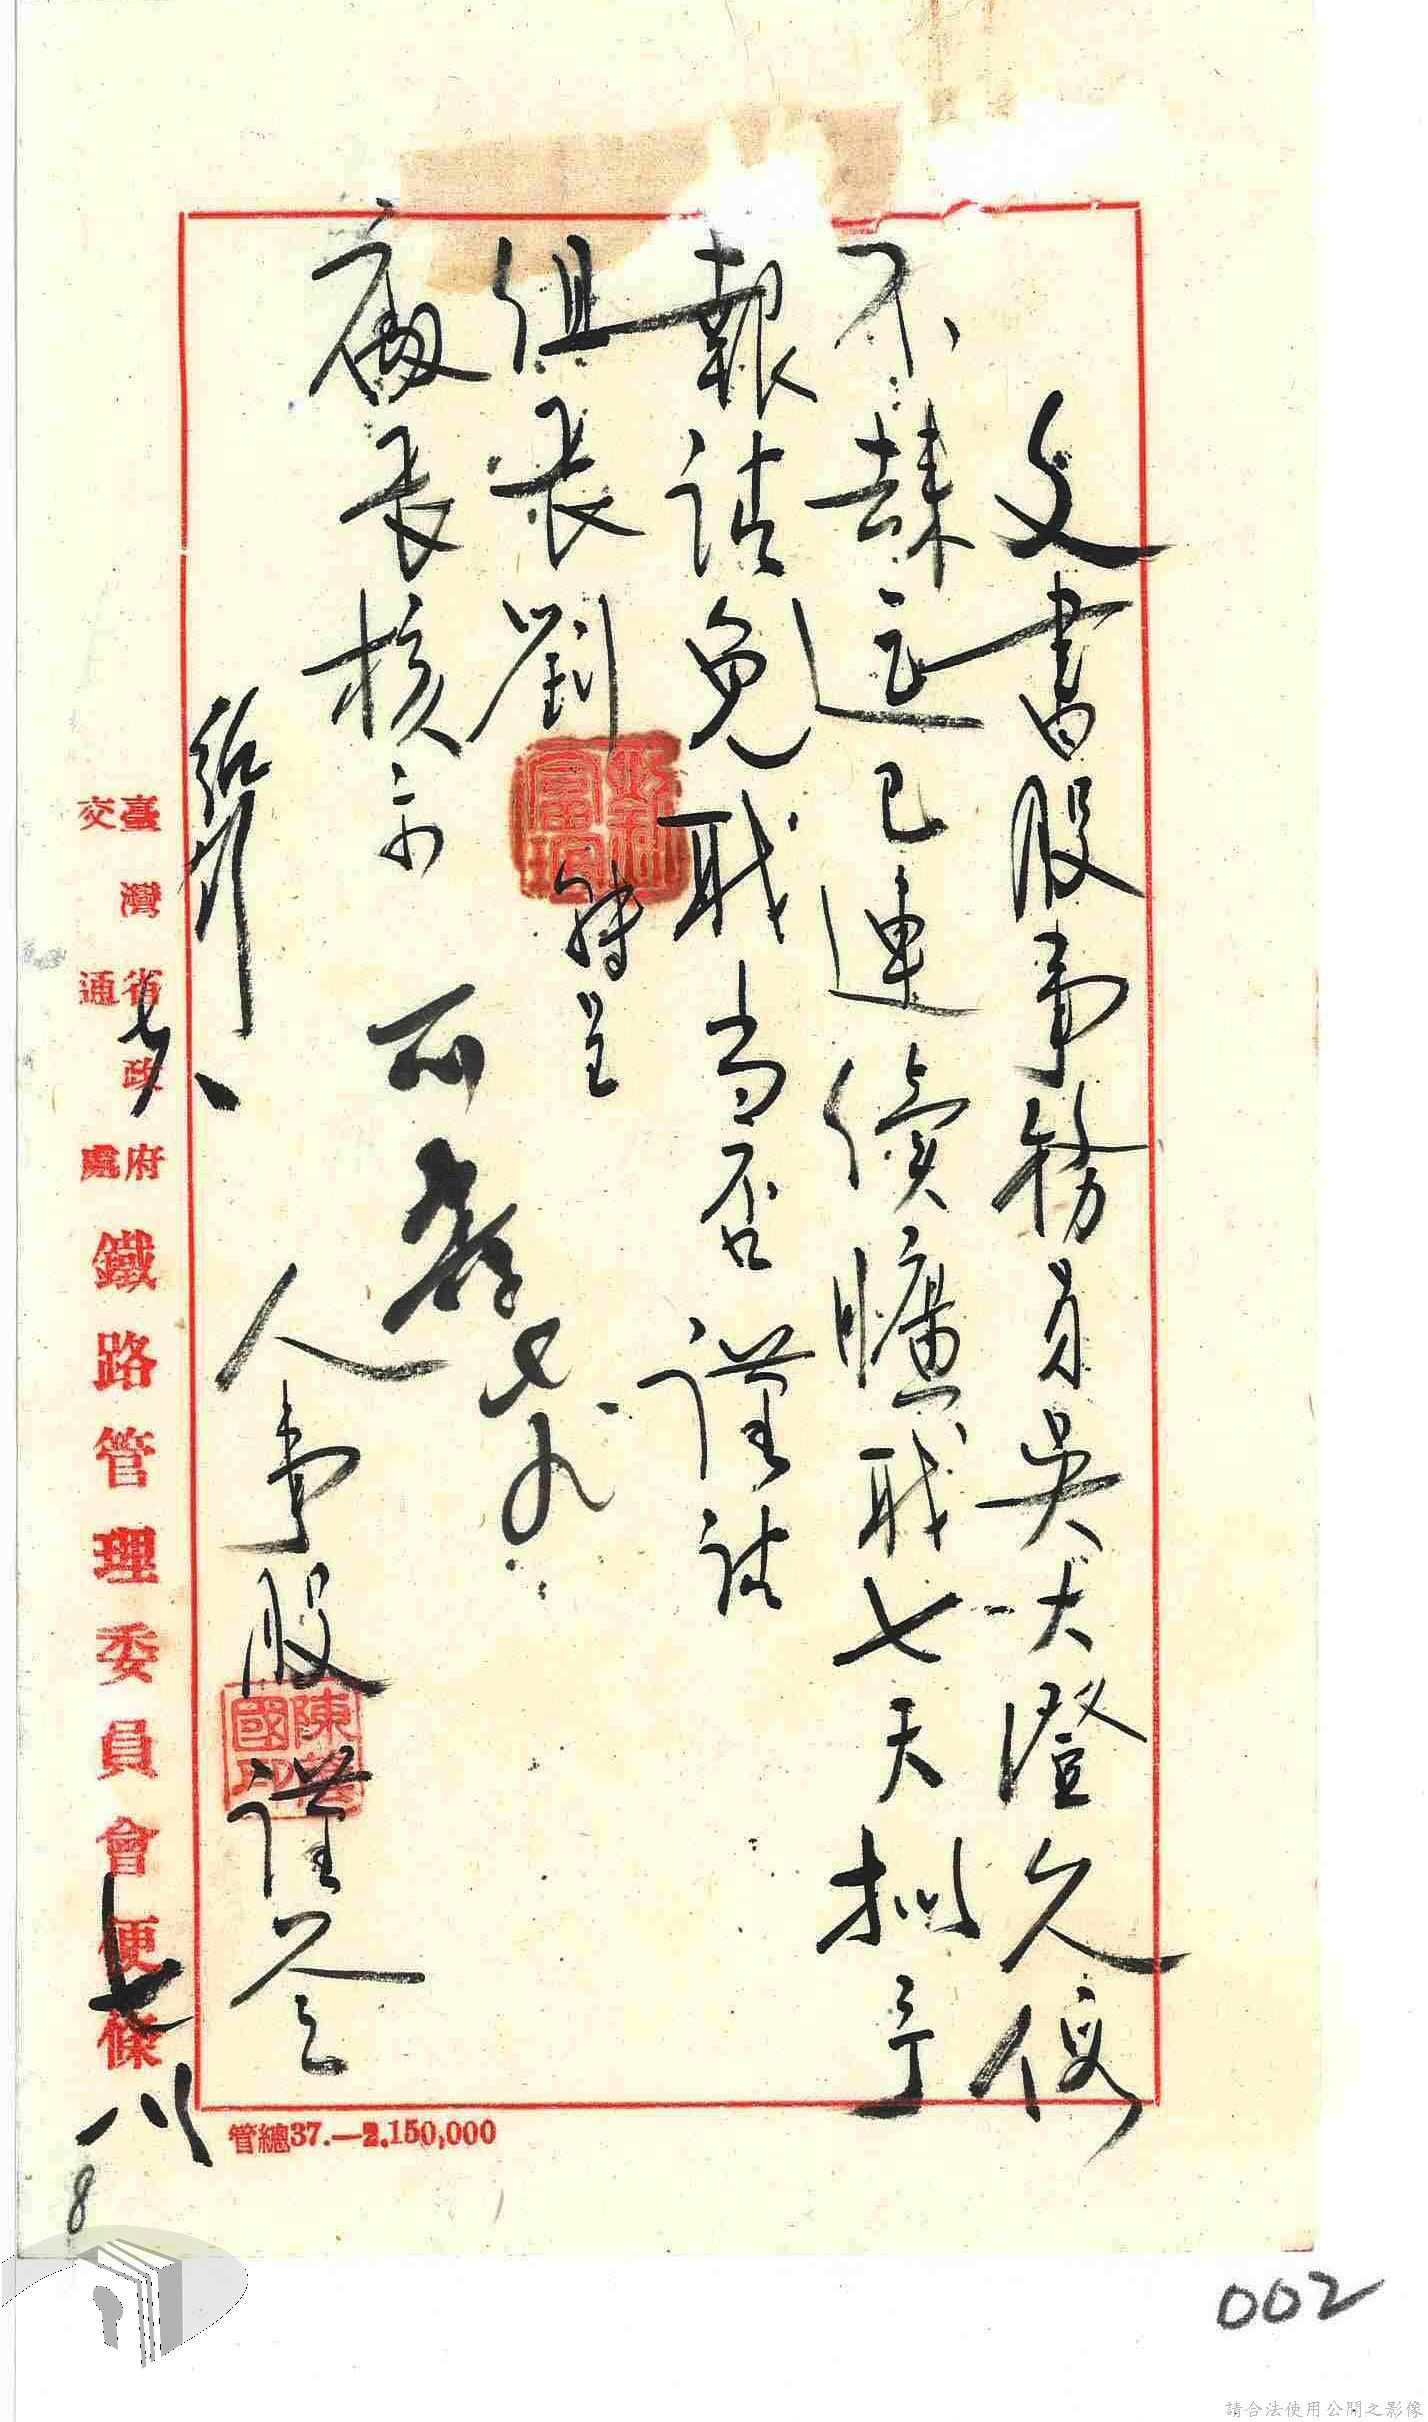 文書股事務員吳大澄久假
不歸迄已連續曠職七天擬予
報請免職當否謹請
組長劉 轉呈
廠長核示
可
七 八
人事股 謹簽
七 八
臺灣省政府
交通處
鐵路管理委員會便條
管總37.—2,150,000
8
002
請合法使用公開之影像